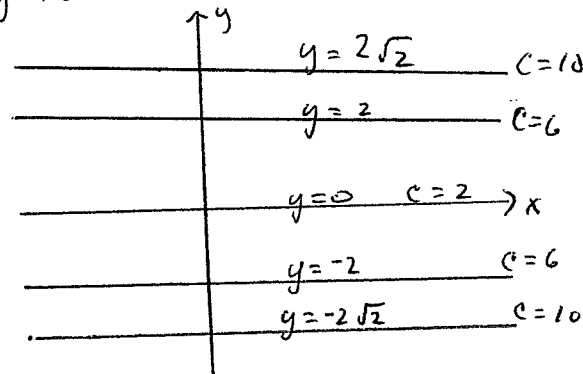 y
y = 2√2 C=10
y = 2 C=6
y=0 C=2 x
y=-2 C=6
y=-2√2 C=10